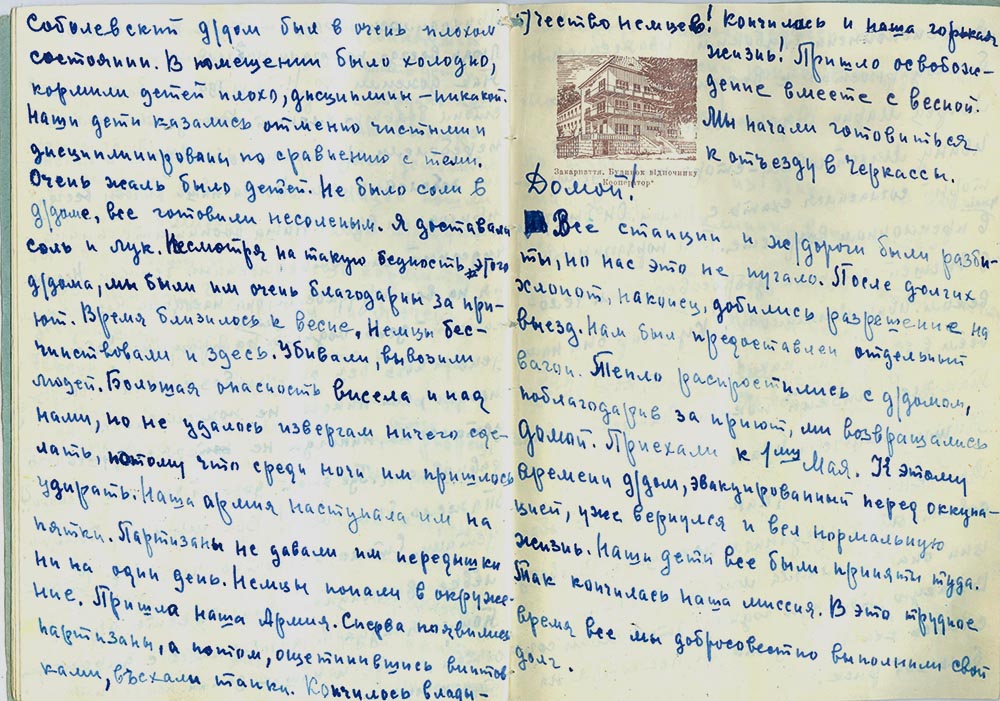 Соболевский д/дом был в очень плохом
состоянии. В помещении было холодно,
кормили детей плохо, дисциплины – никакой.
Наши дети казались отменно чистыми и
дисциплинированы по сравнению с теми.
Очень жаль было детей. Не было соли в
д/доме, все готовили несоленым. Я доставала
соль и лук. Несмотря на такую бедность этого
д/дома, мы были им очень благодарны за при-
ют. Время близилось к весне. Немцы бес-
чинствовали и здесь. Убивали, вывозили
людей. Большая опасность висела и над
нами, но не удалось извергам ничего сде-
лать, потому что среди ночи им пришлось
удирать. Наша армия наступала им на
пятки. Партизаны не давали им передышки
ни на один день. Немцы попали в окруже-
ние. Пришла наша Армия. Сперва появились
партизаны, а потом, ощетинившись винтов-
ками, въехали танки. Кончилось влады-
чество немцев! Кончилась и наша горькая
жизнь! Пришло освобож-
дение вместе с весной.
Мы начали готовиться
к отъезду в Черкассы.
Закарпаття. Будинок відпочинку
"Кооператор"
Домой!
Все станции и ж/дороги были разби-
ты, но нас это не пугало. После долгих
хлопот, наконец, добились разрешение на
выезд. Нам был предоставлен отдельный
вагон. Тепло распростились с д/домом,
поблагодарив за приют, мы возвращались
домой. Приехали к 1му Мая. К этому
времени д/дом, эвакуированный перед оккупа-
цией, уже вернулся и вел нормальную
жизнь. Наши дети все были приняты туда.
Так кончилась наша миссия. В это трудное
время все мы добросовестно выполнили свой
долг.